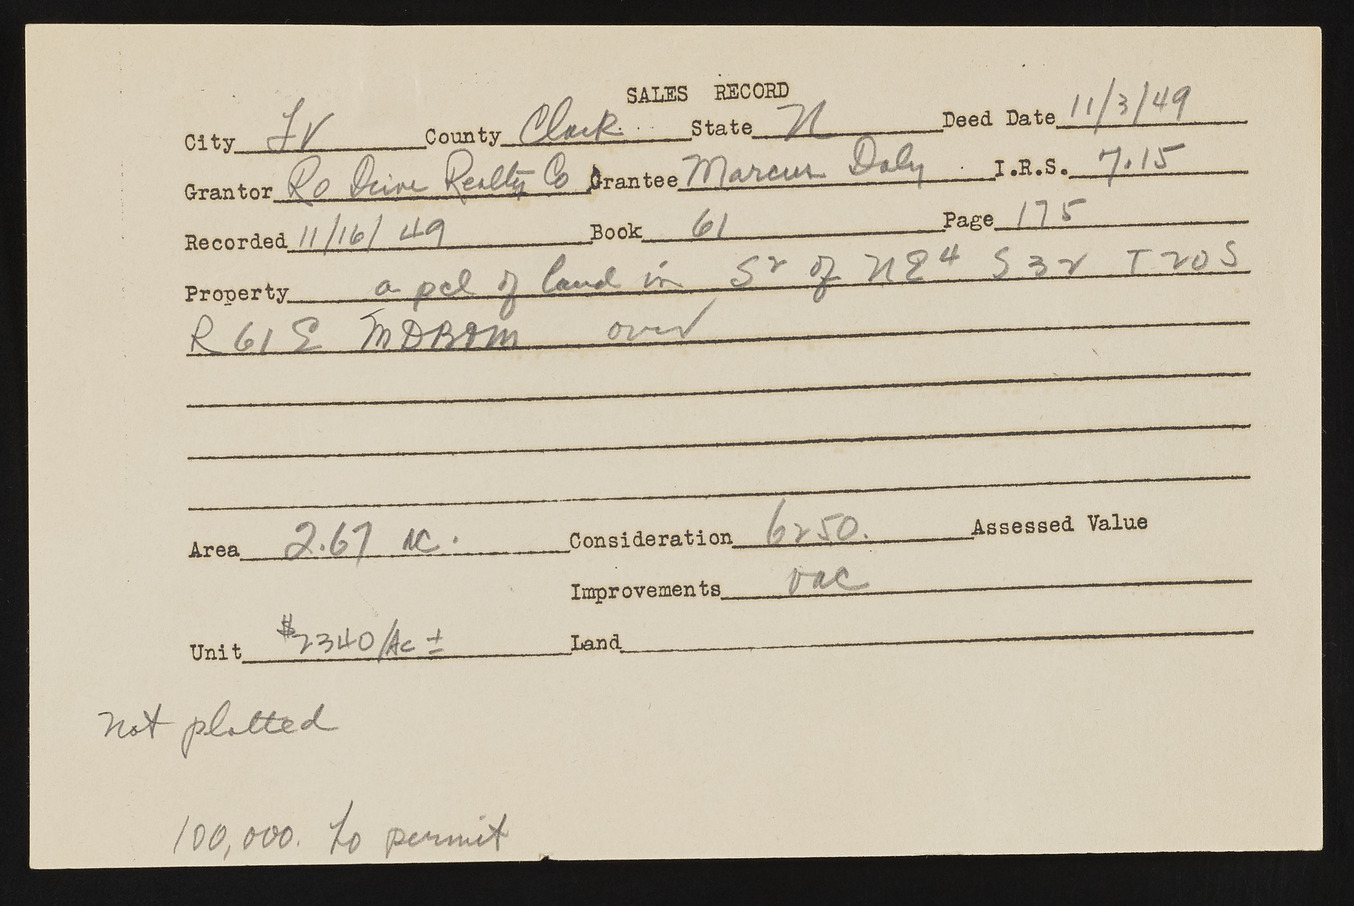 SALES RECORD
City LV County Clark. State N Deed Date 11/3/49
Grantor Ro Drive Realty Co Grantee Marcus Daly I.R.S. 7.15
Recorded 11/16/49 Book 61 Page 175
Property a pcl of land in S2 of NE4 S32 T20S
R61E MDB&M over
Area 2.67 ac. Consideration 6250. Assessed Value
Improvements vac
Unit $2340/Ac ± Land
not plotted
100,000. to permit